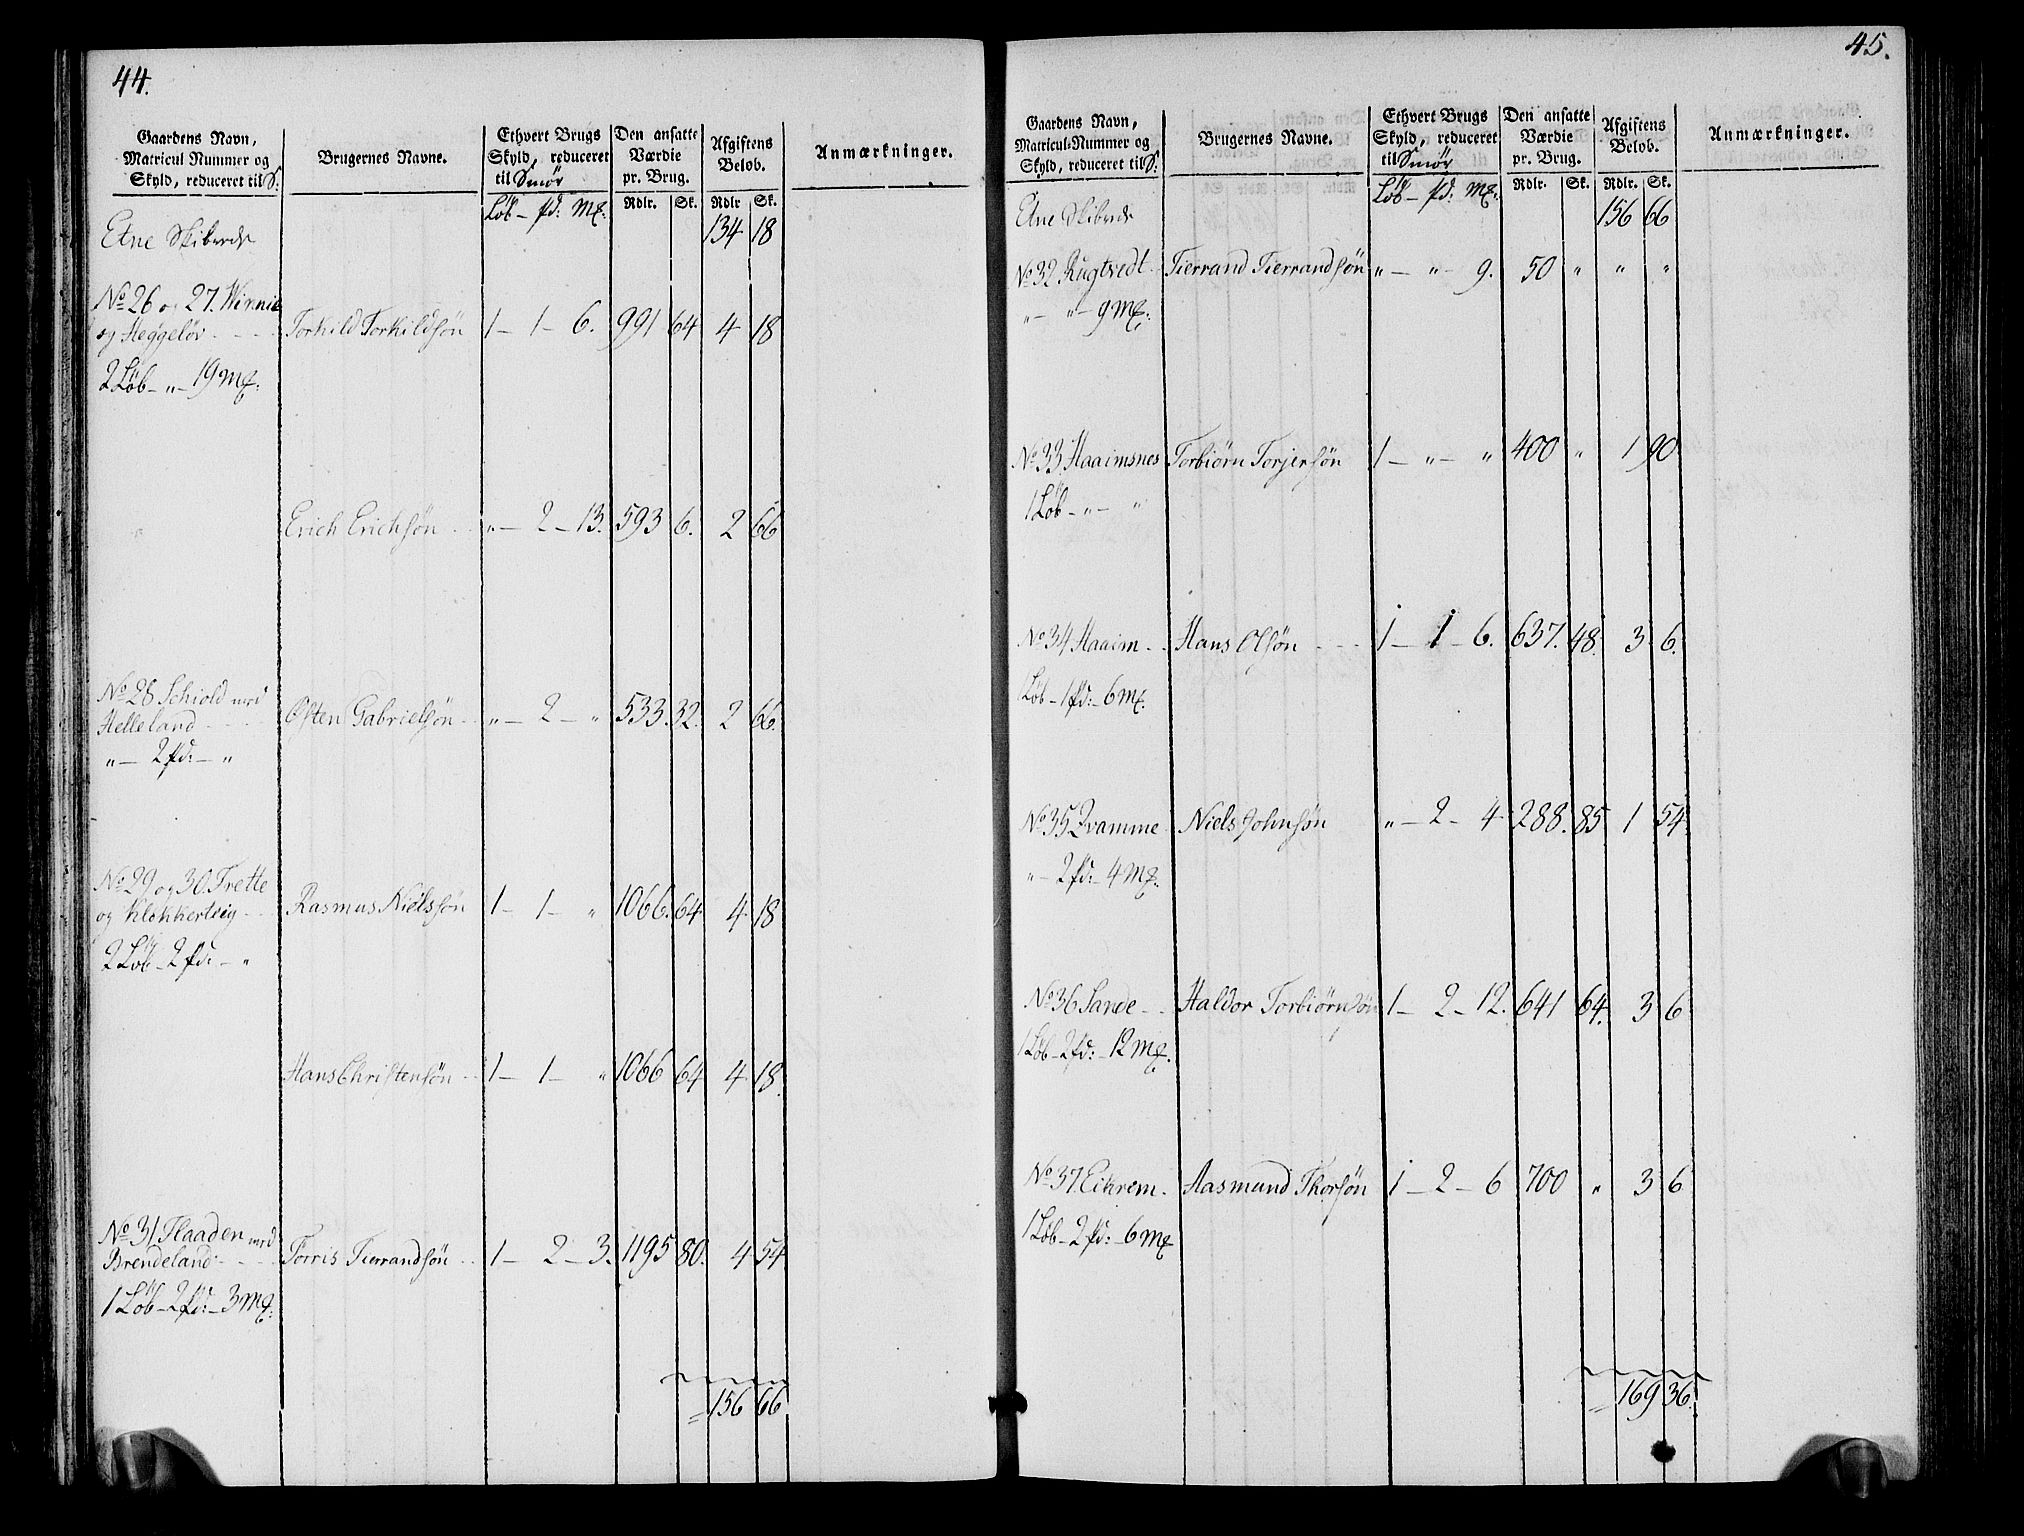 44.
Gaardens Navn, Matricul Nummer og Skyld, reduceret til S:
Brugernes Navne.
Ethvert Brugs Skyld, reduceret til Smör
Den ansatte Værdie pr. Brug.
Afgiftens Beløb.
Anmærkninger.
Löb – pd: mk: Rdlr. Sk. Rdlr Sk.
Etne Skibrede 134 18
No 26 og 27. Winnie
og Heggeløv Torkild Torkildsøn 1 – 1 – 6. 991 64 4 18
2 Löb – „ – 19 mk:
Erich Erichsøn „ – 2 – 13. 593 6. 2 66
No 28 Schiold med
Helleland Østen Gabrielsøn „ – 2 – „ 533. 32. 2 66.
„ – 2 pd: – „
No 29 og 30. Frette
og Klokkerteig Rasmus Nielssøn 1 – 1 – „ 1066. 64 4 18
2 Löb – 2 pd: – „
Hans Christensøn 1 – 1 – „ 1066 64 4 18.
No 31 Flaaden med
Brendeland Torris Tierrandsøn 1 – 2 – 3. 1195 80. 4 54
1 Löb – 2 pd: – 3 mk:
= 156 66
45.
Gaardens Navn, Matricul-Nummer og Skyld, reduceret til S:
Brugernes Navne.
Ethvert Brugs Skyld, reduceret til Smör
Den ansatte Værdie pr. Brug.
Afgiftens Beløb.
Anmærkninger.
Löb – pd: mk: Rdlr. Sk. Rdlr. Sk.
Etne Skibrede 156 66
No 32 Rugtvedt Tierrand Tierrandsøn „ – „ – 9. 50 „ „ „
„ – „ – 9 mk:
No 33 Haaimsnes Torbiørn Torjersøn 1 – „ – „ 400 „ 1 90
1 Löb – „ – „
No 34 Haaim Hans Olsøn 1 – 1 – 6. 637. 48. 3 6.
1 Löb – 1 pd: – 6 mk.
No 35 Qvamme Niels Johnsøn „ – 2 – 4 288. 85 1 54
„ – 2 pd: – 4 mk:
No 36 Sande Haldor Torbiørnsøn 1 – 2 – 12. 641 64. 3 6
1 Löb – 2 pd: – 12 mk.
No 37. Eikrem Aasmund Thorsøn 1 – 2 – 6 700 „ 3 6
1 Löb – 2 pd: – 6 mk
= 169 36.